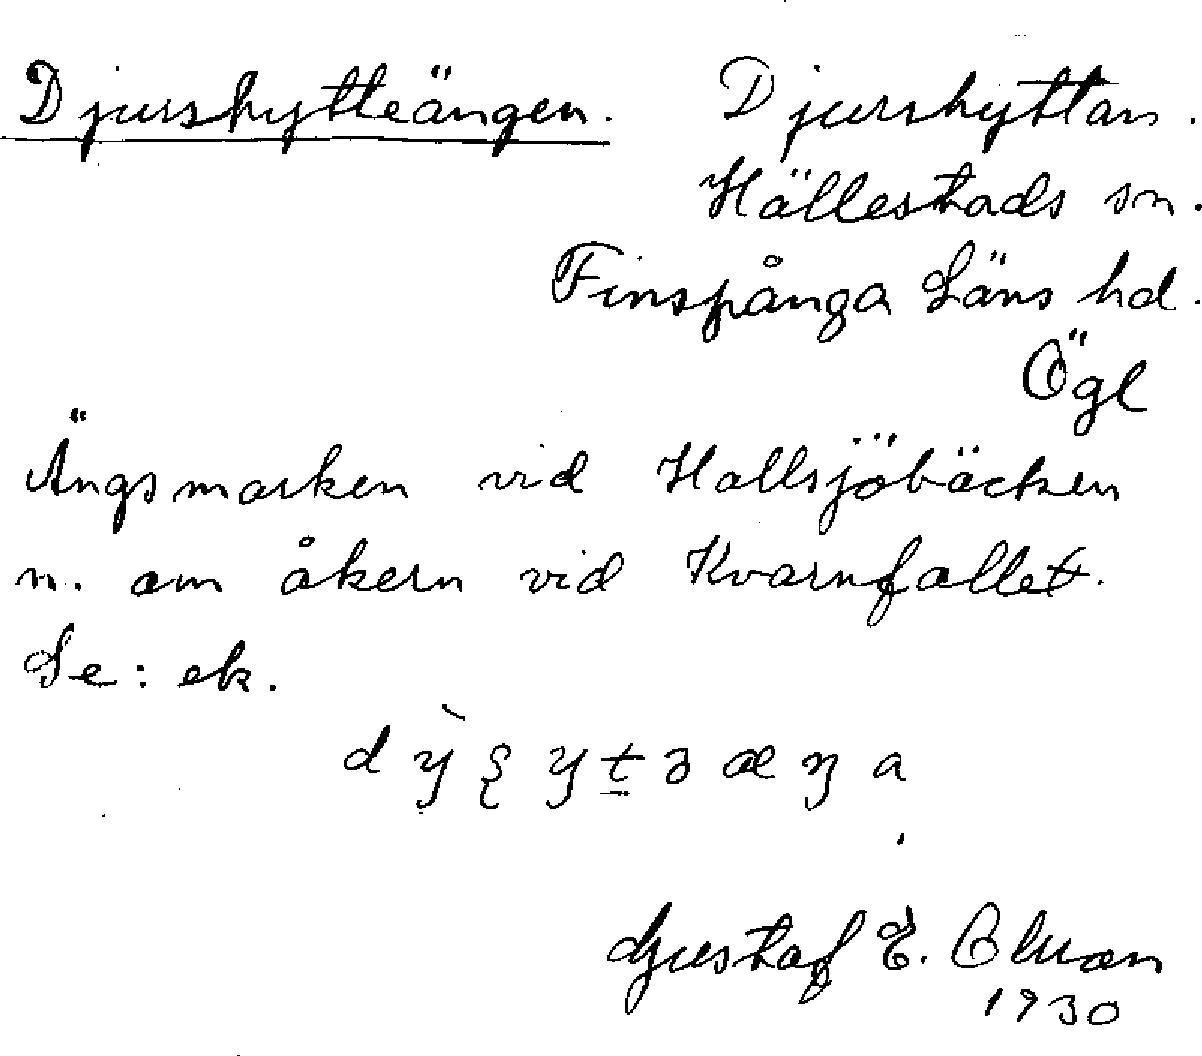 Djurshytteängen. Djurshyttan.
Hällestads sn.
Finspånga Läns hd.
Ögl
Ängsmarken vid Hallsjöbäcken
n. om åkern vid Kvarnfallet.
Se: ek.
Gustaf E.
1930